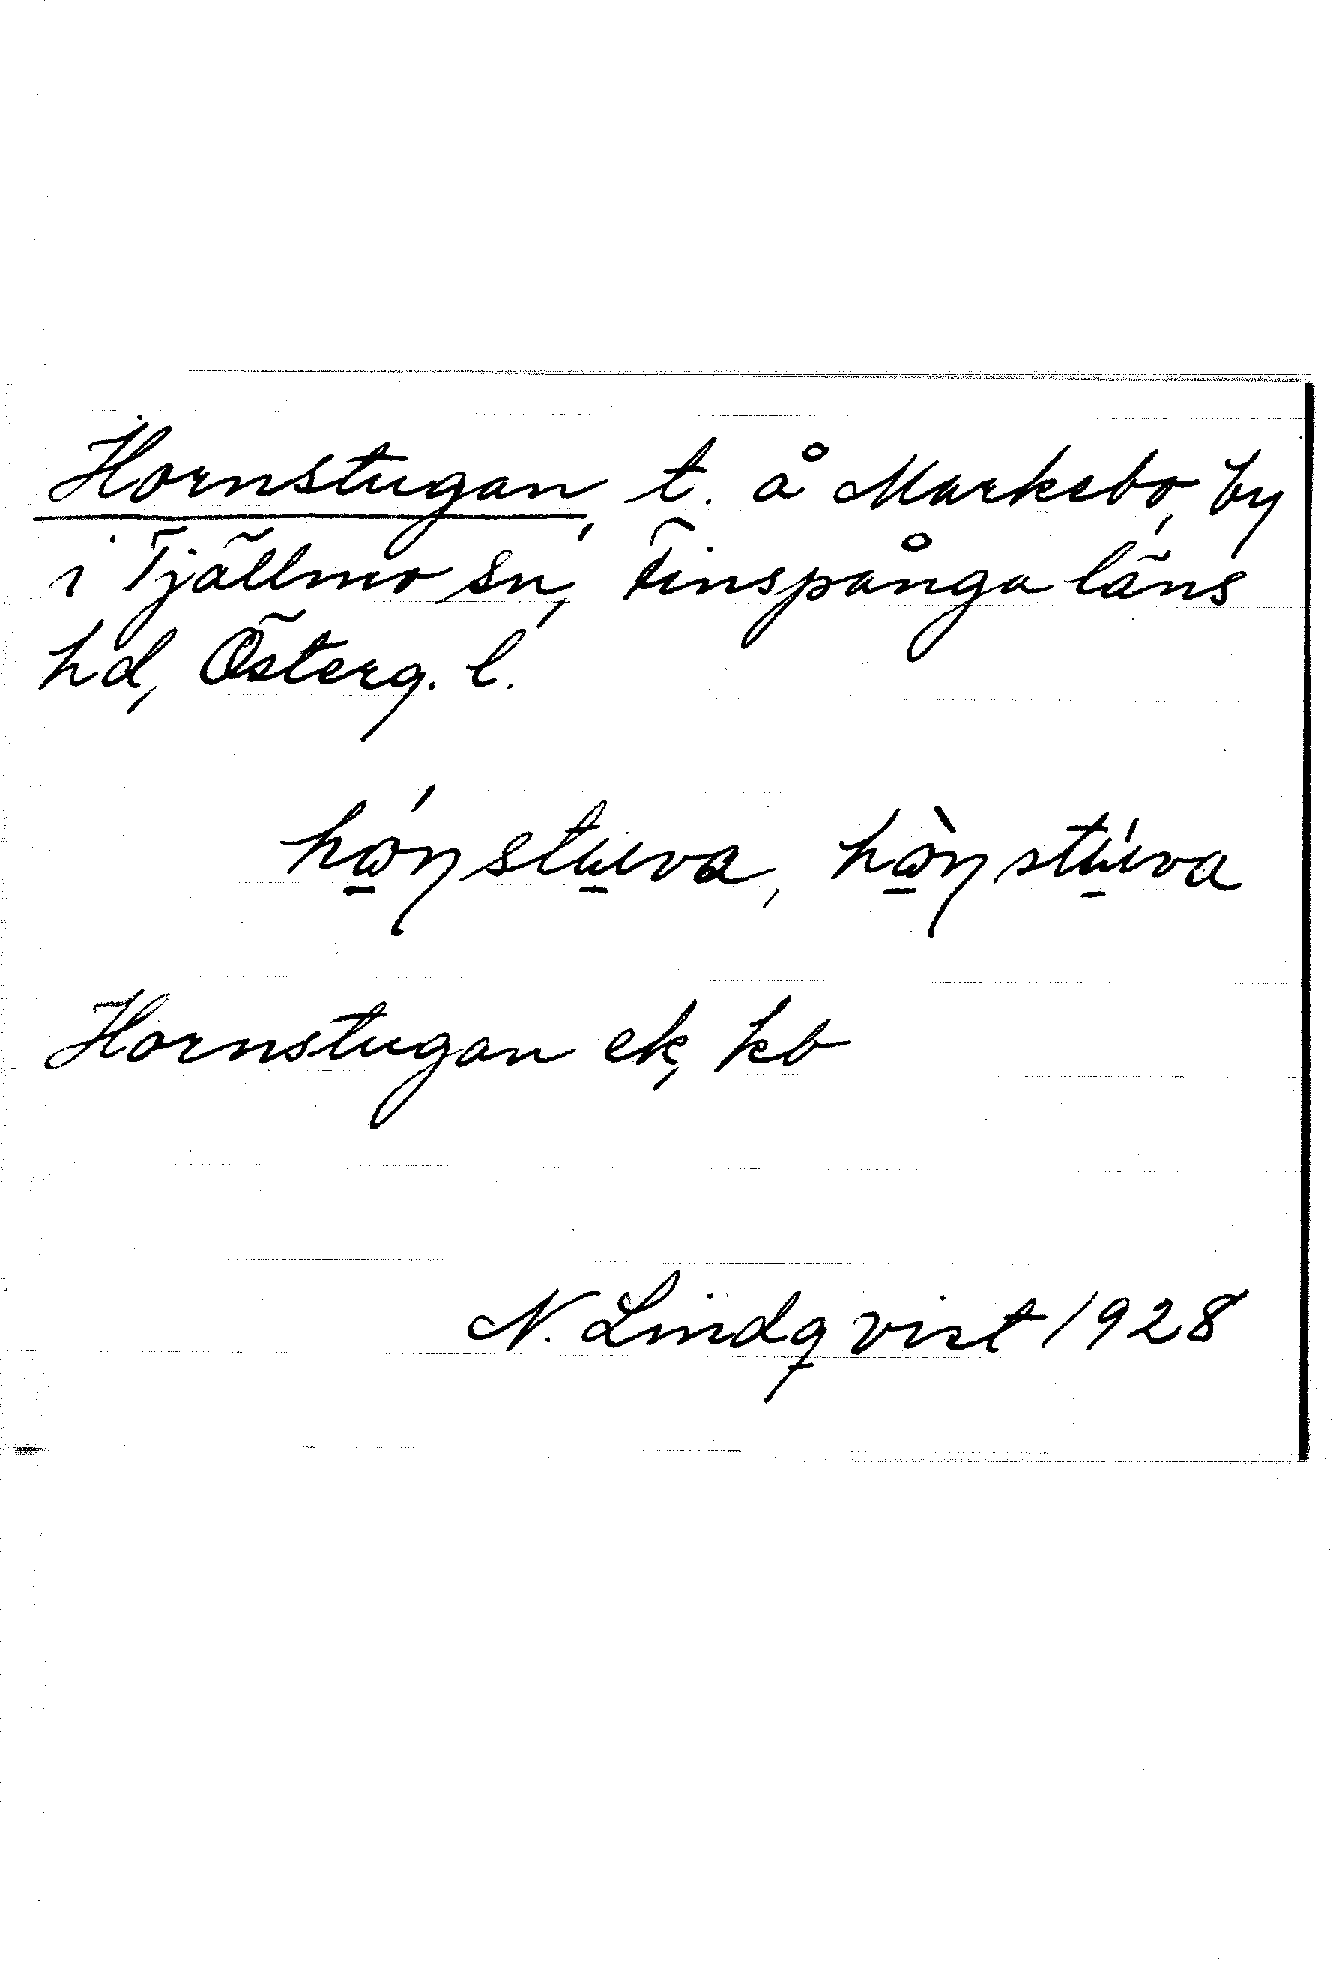 Hornstugan, t. å Marksbo, by
i Tjällmo sn, Finspånga läns
hd, Österg. l.
Hornstugan ek, kb
N. Lindqvist 1928